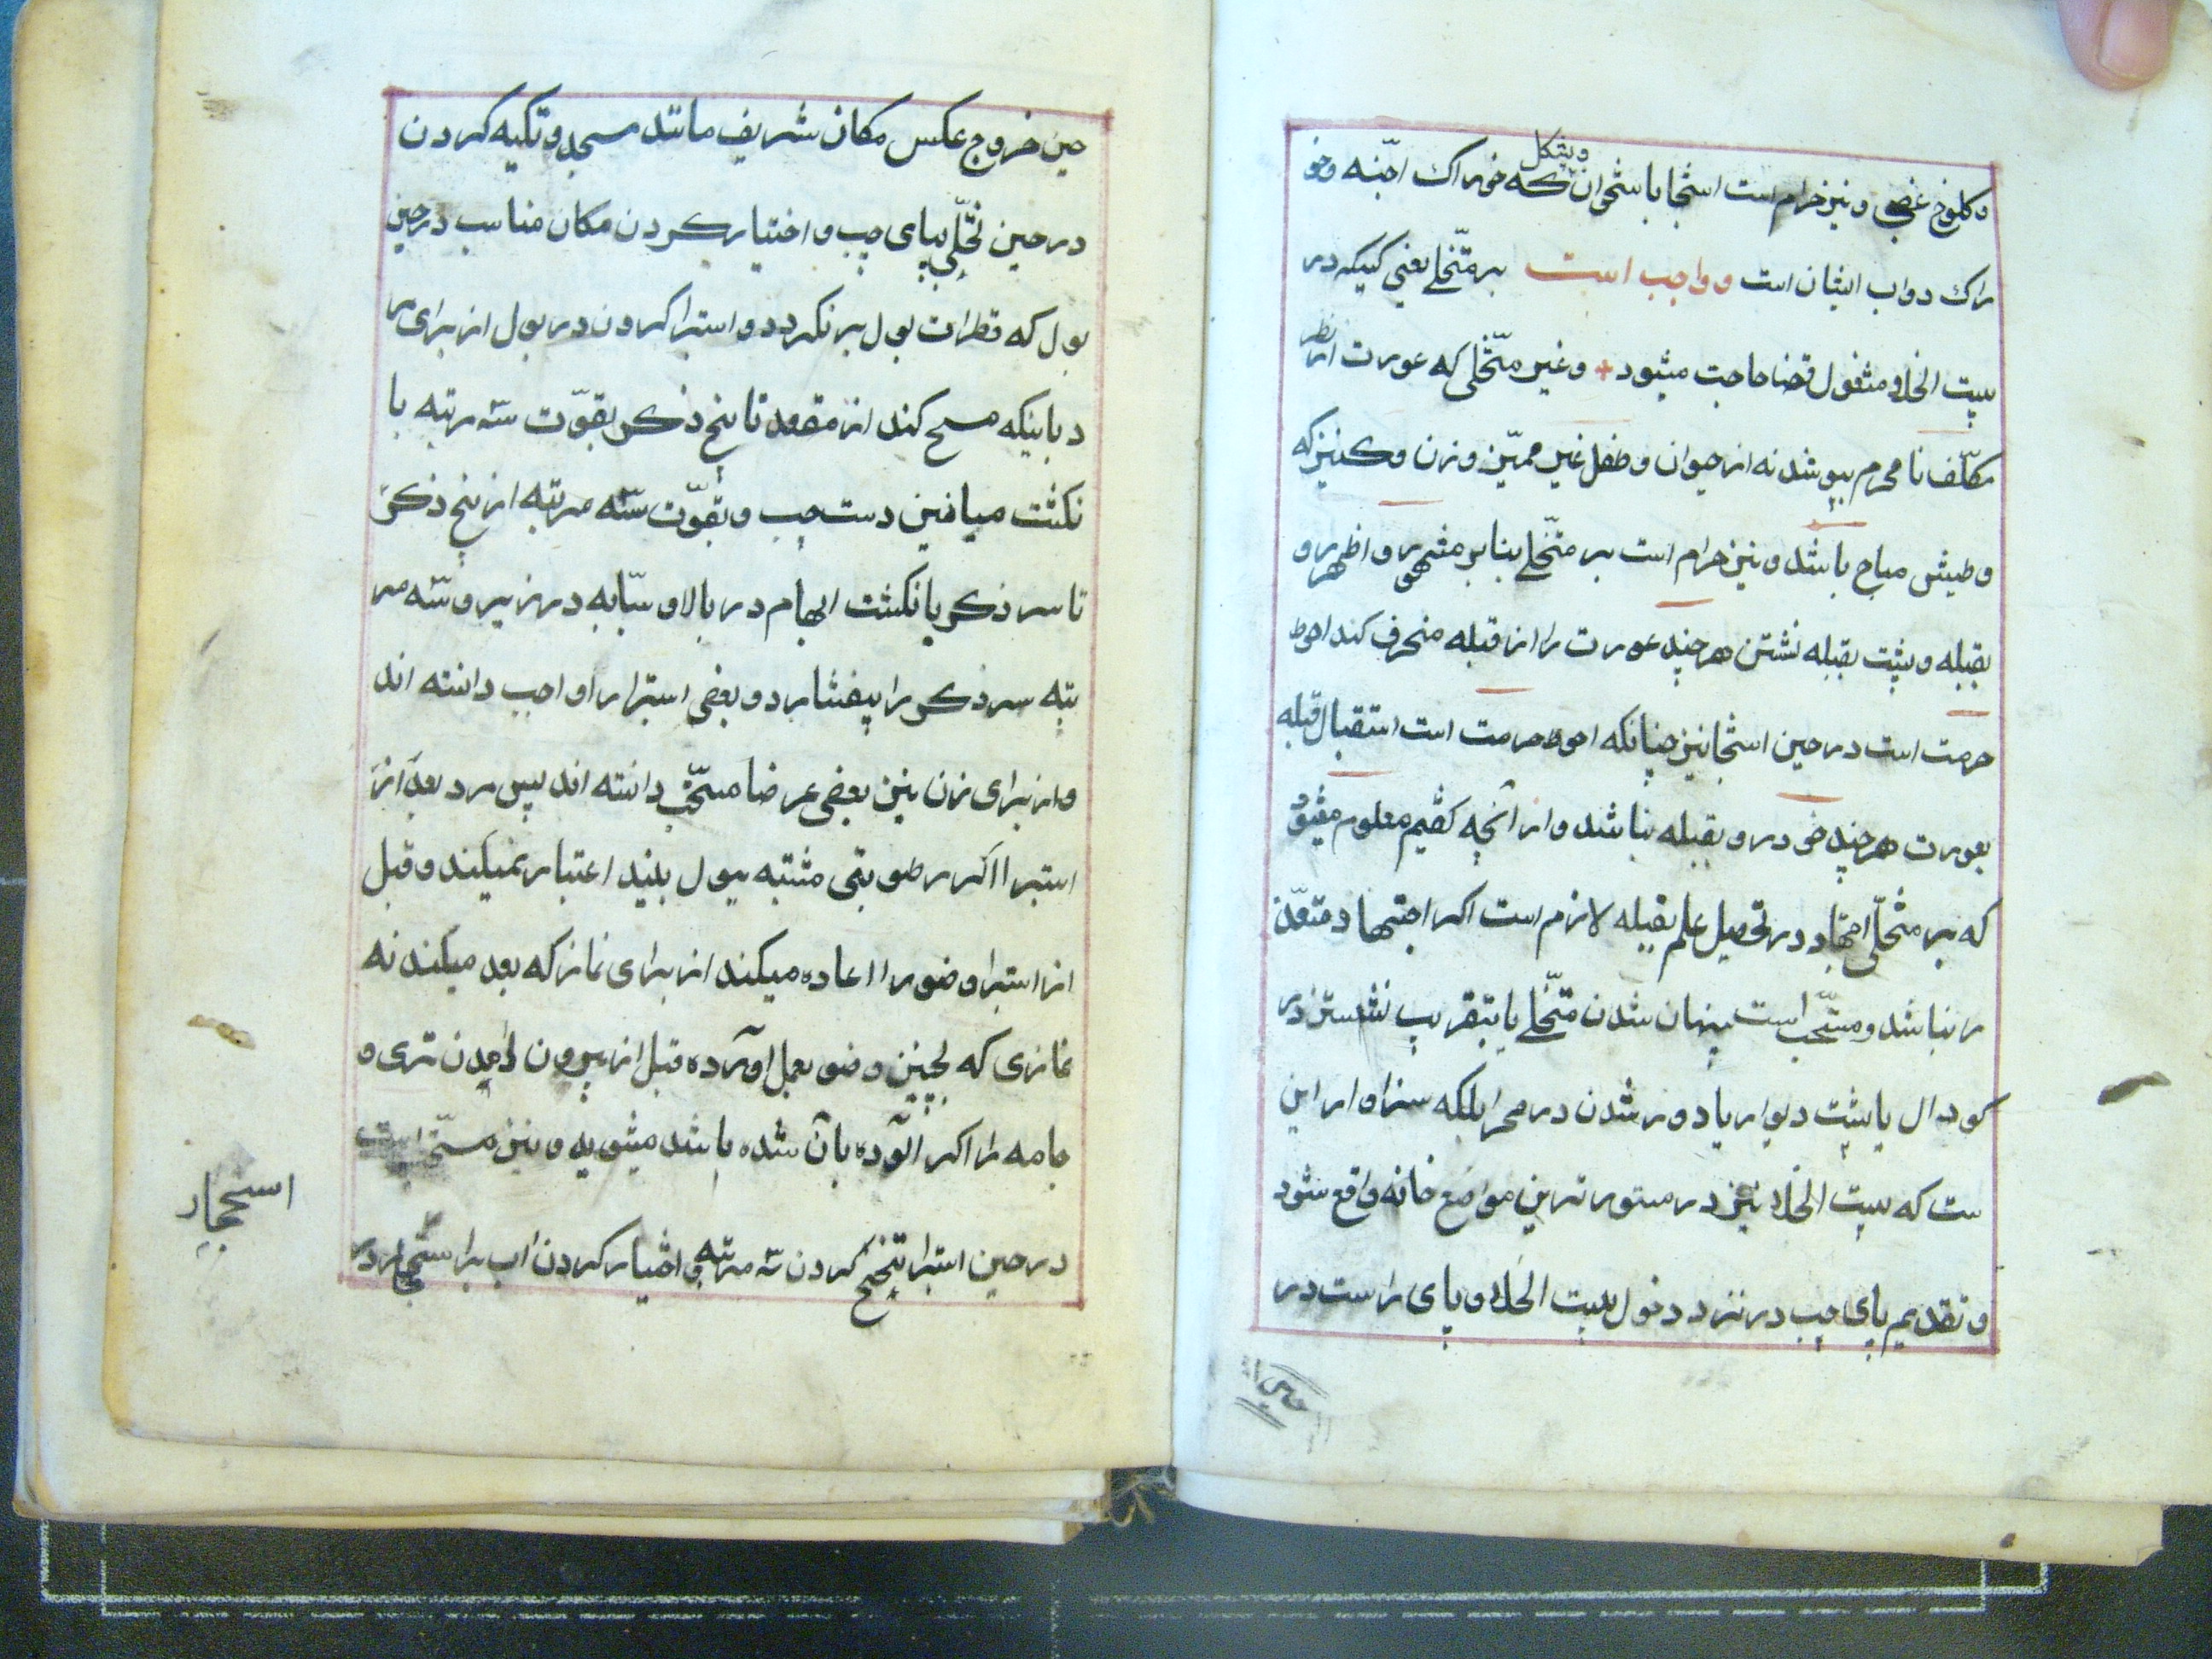 وپشکل
وکلوخ غصبی ونیز حرام است استنجا باستخوان که خوراک اجنّه وخو
راک دواب ایشان است وواجب است بر متخلّی یعنی کسیکه در
بیت الخلا ومشغول قضا حاجت میشود + وغیر متخلّی که عورت از نظر
مکلّف نا محرم بپوشد نه از حیوان وطفل غیر ممیّز وزن وکنیز که
وطیش مباح باشد ونیز حرام است بر متخلّی بنابر مشهور واظهر رو
بقبله وپشت بقبله نشستن هر چند عورت را از قبله منحرف کند احوط
حرمت است در حین استنجا نیز چنانکه احوط حرمت است استقبال قبله
بعورت هر چند خود رو بقبله نباشد واز آنچه گفتیم معلوم میشود
که بر متخلّی اجتهاد در تحصیل علم بقبله لازم است اکر اجتهاد متعذّ
ر نباشد ومستحّب است پنهان شدن متخلّی یا بتقریب نشستن در
کودال یا پشت دیوار یا دور شدن در صحرا بلکه سزاوار این
ست که بیت الخلا نیز در مستور ترین مواضع خانه واقع شود
وتقدیم پای چپ در نزد دخول بیت الخلا وپای راست در
حین خروج عکس مکان شریف مانند مسجد وتکیه کردن
در حین تخلّی بپای چپ واختیار کردن مکان مناسب در حین
بول که قطرات بول بر نکردد واستبرا کردن در بول از برای مر
د باینکه مسح کند از مقعد تا بیخ ذکر بقوّت سّه مرتبه با
نکشت میانین دست چپ وبقوّت سّه مرتبه از بیخ ذکر
تا سر ذکر با نکشت ابهام در بالا وسبّابه در زیر وسّه مر
تبه سر ذکر را بیفشارد وبعضی استبرا را واجب دانسته اند
واز برای زن نیز بعضی عرضا مستحّب دانسته اند پس مرد بعد از
استبرا اکر رطوبتی مشتبه ببول بیند اعتبار نمیکند وقبل
از استبرا وضو را اعاده میکند از برای نماز که بعد میکند نه
نمازی که بچنین وضو بعمل اورده قبل از بیرون امدن تری و
جامه را اکر الوده بآن شده باشد میشوید ونیز مستحّب است
در حین استبرا تنحنح کردن سّه مرتبه واختیار کردن آب بر استجمار در
استجمار